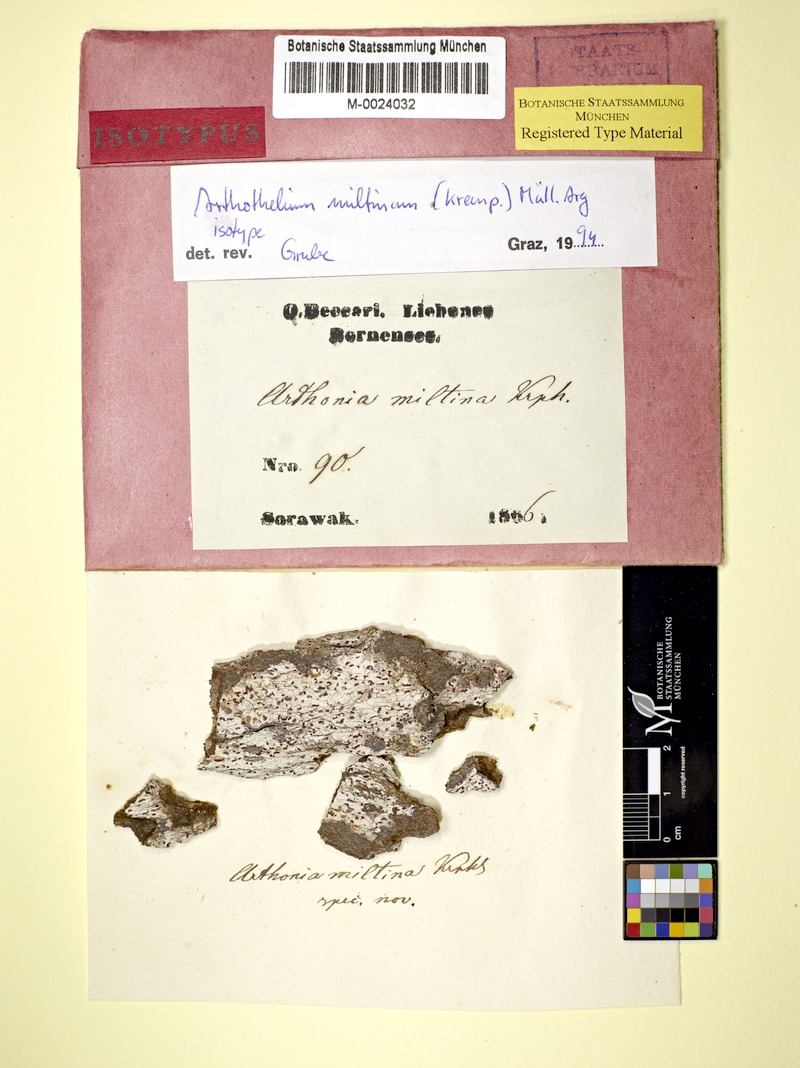 Botanische Staatssammlung München
M-0024032
STAATS-
HERBARIUM
BOTANISCHE STAATSSAMMLUNG
MÜNCHEN
Registered Type Material
ISOTYPUS
Arthothelium miltinum (Kremp.) Müll. Arg
isotype
det. rev. Grube Graz, 1994
O. Beccari. Lichenes
Bornenses.
Arthonia miltina Krph.
Nro. 90.
Sarawak. 1866.
BOTANISCHE
STAATSSAMMLUNG
MÜNCHEN
0 1 2
cm
copyright reserved
Arthonia miltina Krphb
spec. nov.